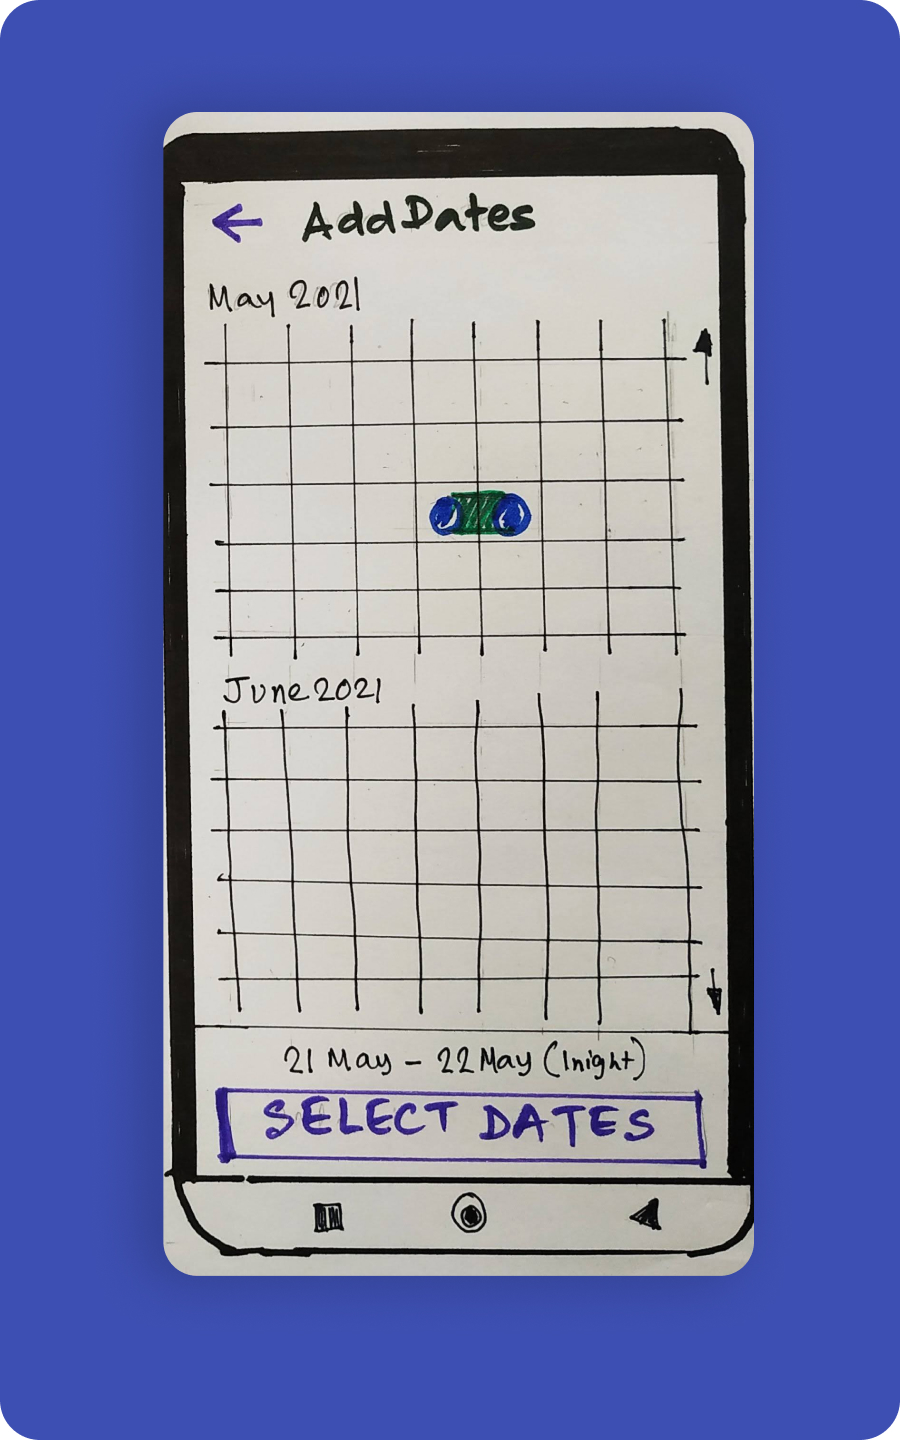 Add Dates
May 2021
June 2021
21 May - 22 May (1night)
SELECT DATES